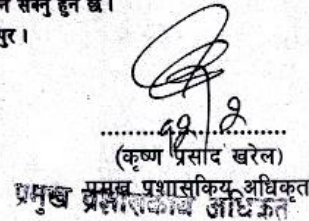 न सक्नु हुने छ।
पुर।
(कृष्ण प्रसाद खरेल)
प्रमुख प्रशासकिय अधिकृत
प्रमुख प्रशासकीय अधिकृत